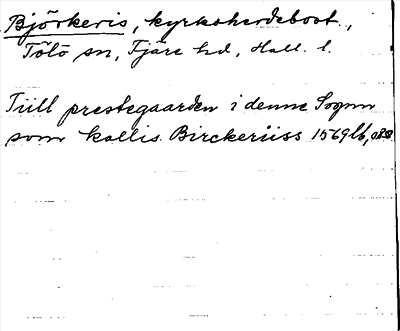 Björkeris, kyrkoherdebost.,
Tölö sn, Fjäre hd, Hall. l.
Tiill prestegaarden i denne Sognn
som kallis Birckeriiss 1569 lb,